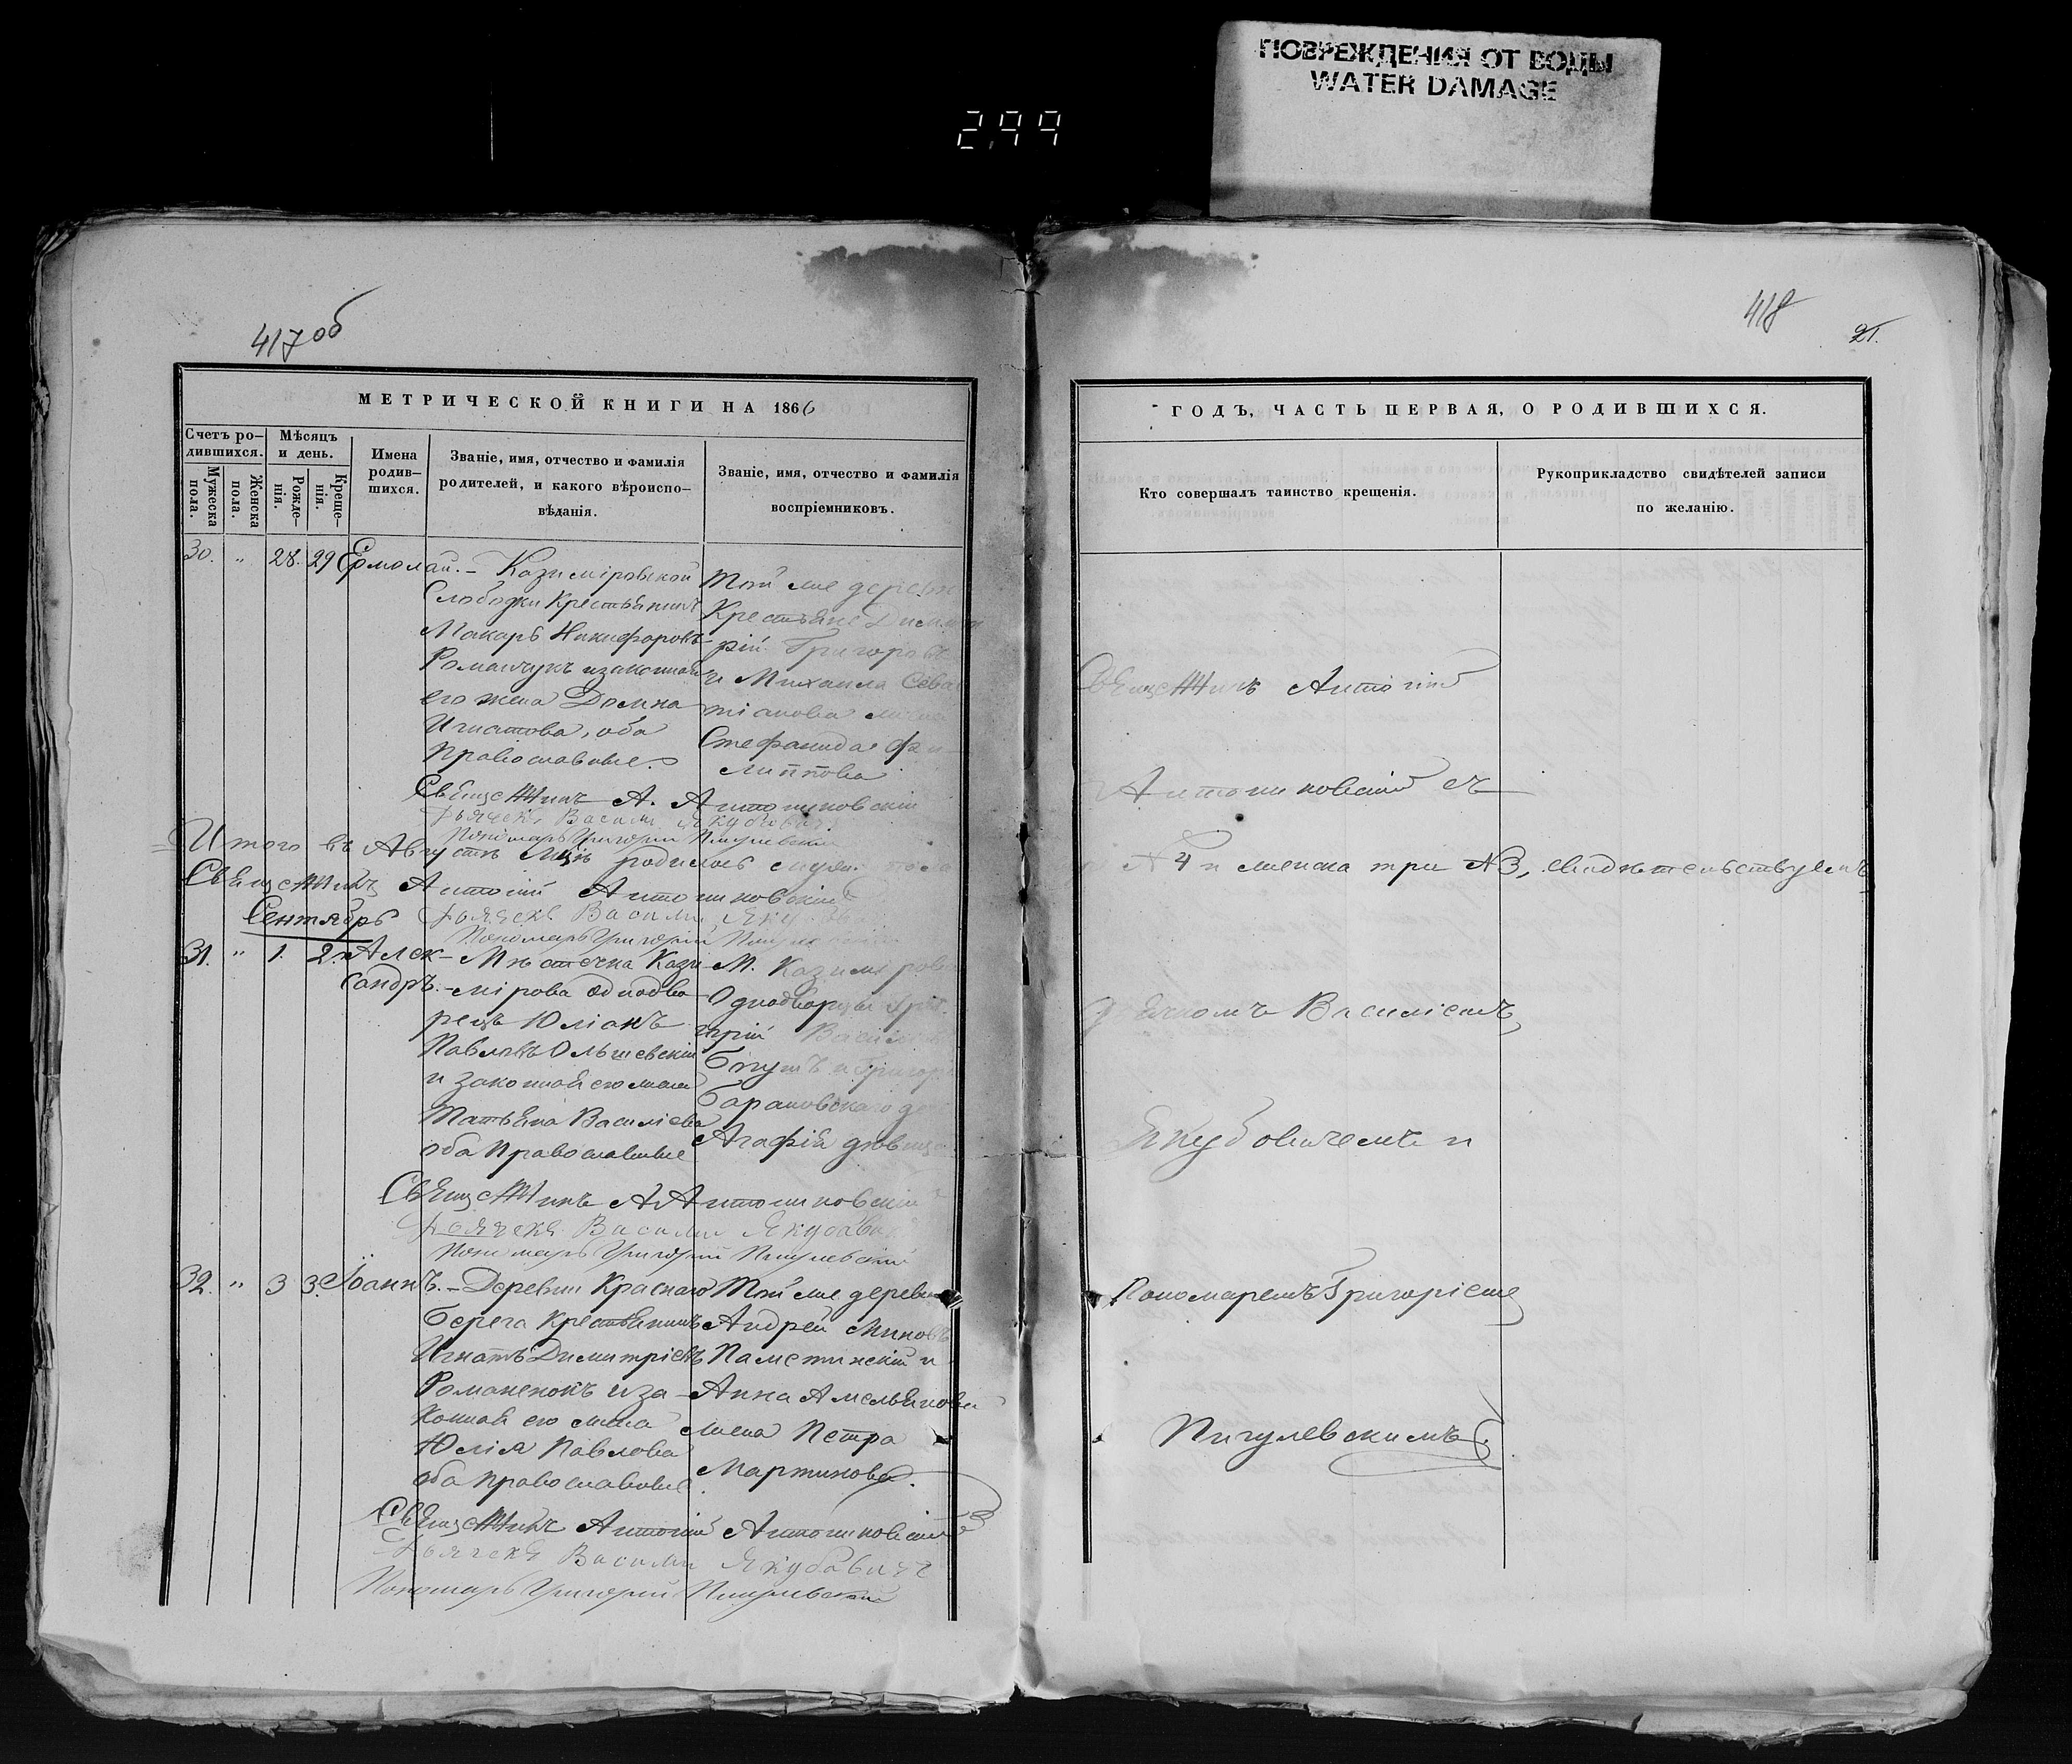 ПОВРЕЖДЕНИЯ ОТ ВОДЫ
WATER DAMAGE
299
417 об
МЕТРИЧЕСКОЙ КНИГИ НА 1866
Счетъ родившихся.
Мужеска пола.
Женска пола.
Мѣсяцъ и день.
Рожденія.
Крещенія.
Имена родившихся.
Званіе, имя, отчество и фамилія
родителей, и какого вѣроисповѣданія.
Званіе, имя, отчество и фамилія
воспріемниковъ.
30. " 28. 29 Ермолай. - Казиміровской
Слободки Крестьянинъ
Макаръ Никифоровъ
Романчукъ и законная
его жена Домна
Игнатова, оба
православные.
Той же деревни
Крестьяне Димит
рій Григоровъ
и Михаила Севас
тіанова жена
Стефанида Фи-
липпова
Священникъ А. Антониковскій
Дьячекъ Василий Якубовичъ
Пономарь Григорий Пигулевский
Итого въ Августѣ м-цѣ родилось муж. пола
Священникъ Антоній Антониковскій
Сентябрь
Дьячекъ Василий
Пономарь Григорій
31. " 1. 2. Алек-
сандръ.
Мѣстечка Кази-
мірова Однодво-
рецъ Юліанъ
Павловъ Ольшевскій
и законная его жена
Татьяна Василіева
оба православные
М. Казимиров
Однодворцы
Агафія дѣвица
Священникъ А Антониковскій
Дьячекъ Василий Якубовичъ
Пономарь Григорий Пигулевский
32. " 3 3. Іоаннъ. - Деревни Краснаго
Берега Крестьянинъ
Игнатъ Димитріевъ
Романенокъ и за-
конная его жена
Юлія Павлова
оба православные.
Той же деревни
Андрей Миновъ
и
Анна Амельянова
жена Петра
Мартинова.
Священникъ Антоній Антониковскій
Дьячекъ Василий Якубовичъ
Пономарь Григорий Пигулевский
418
21.
ГОДЪ, ЧАСТЬ ПЕРВАЯ, О РОДИВШИХСЯ.
Кто совершалъ таинство крещенія.
Рукоприкладство свидѣтелей записи
по желанію.
Священникъ Антоній
Антониковскій съ
№ 4 и женска три № 3, свидѣтельствуемъ
Дьячкомъ Василіемъ
Якубовичемъ и
Пономаремъ Григоріемъ
Пигулевскимъ.